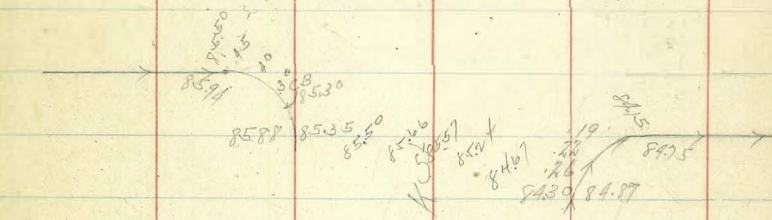 85.50
45
40
30
CB
85.94
85.30
85.88 85.35 85.50 85.66 85.57 85.21 84.67
.19
.22
.26
84.30 84.87
84.15
84.75